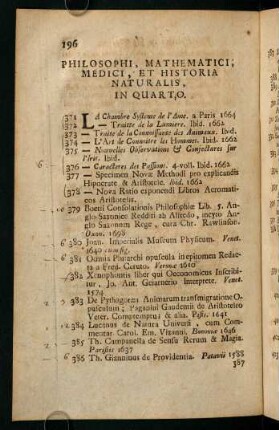 196
PHILOSOPHI, MATHEMATICI,
MEDICI, ET HISTORIA
NATURALIS,
IN QUARTO.
371 LA Chambre Systeme de l'Ame. a Paris 1664
372 — Traitte de la Lumiere. Ibid. 1662
373 — Traite de la Connoissance des Animaux. Ibid.
374 — L'Art de Connoitre les Hommes. Ibid. 1662
375 — Nouvelles Observations & Conjectures sur
l'Iris. Ibid.
6. 376 — Caracteres des Passions. 4. voll. Ibid. 1662
377 — Specimen Novæ Methodi pro explicandis
Hipocrate & Aristotele. Ibid. 1662
378 — Nova Ratio exponendi Libros
Aristotelis.
379 Boetii Consolationis Philosophiæ Lib. 5. An-
glo Saxonice Redditi ab Alfredo,
Saxonum Rege, cura Chr. Rawlinson.
Oxon. 1698
6 380 Joan. Imperialis Museum Physicum. Venet.
1640
6 381 Omnia Plutarchi opuscula
a Fred. Ceruto. Veronæ 1610
382 Xenophontis liber qui Oeconomicus Inscribi-
tur, Jo. Ant. Interprete. Venet.
1574
2 383 De Pythagoræa Animarum transmigratione O-
pusculum; Paganini Gaudentii de Aristoteleo
Veter. Comtemptu; & alia. Pisis. 1641
2 384 Lucanus de Natura Universi, cum Com-
mentar. Carol. Em. Vizanii. Bononiæ 1646
385 Th. Campanella de Sensu Rerum & Magia.
Parisiis 1637
6 386 Th. Gianninus de Providentia. Patavii 1588
387